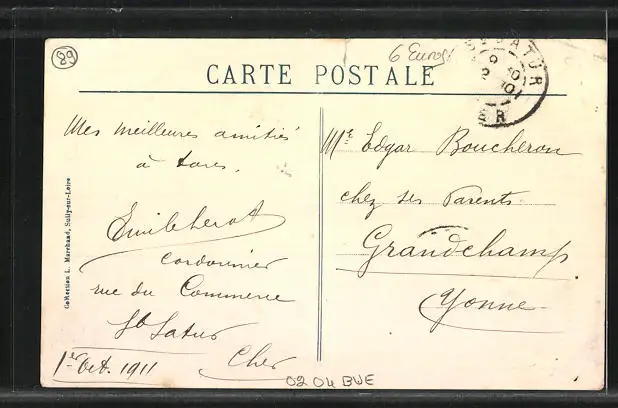 89
6 Euros
CARTE POSTALE
Mes meilleures amitiés
à tous.
cordonnier
rue du Commerce
St Satur
Cher
1er Oct. 1911
Mr Edgar Boucheron
chez ses Parents
Grandchamp
Yonne
Collection L. Marchand, Sully-sur-Loire
02 04 BWE